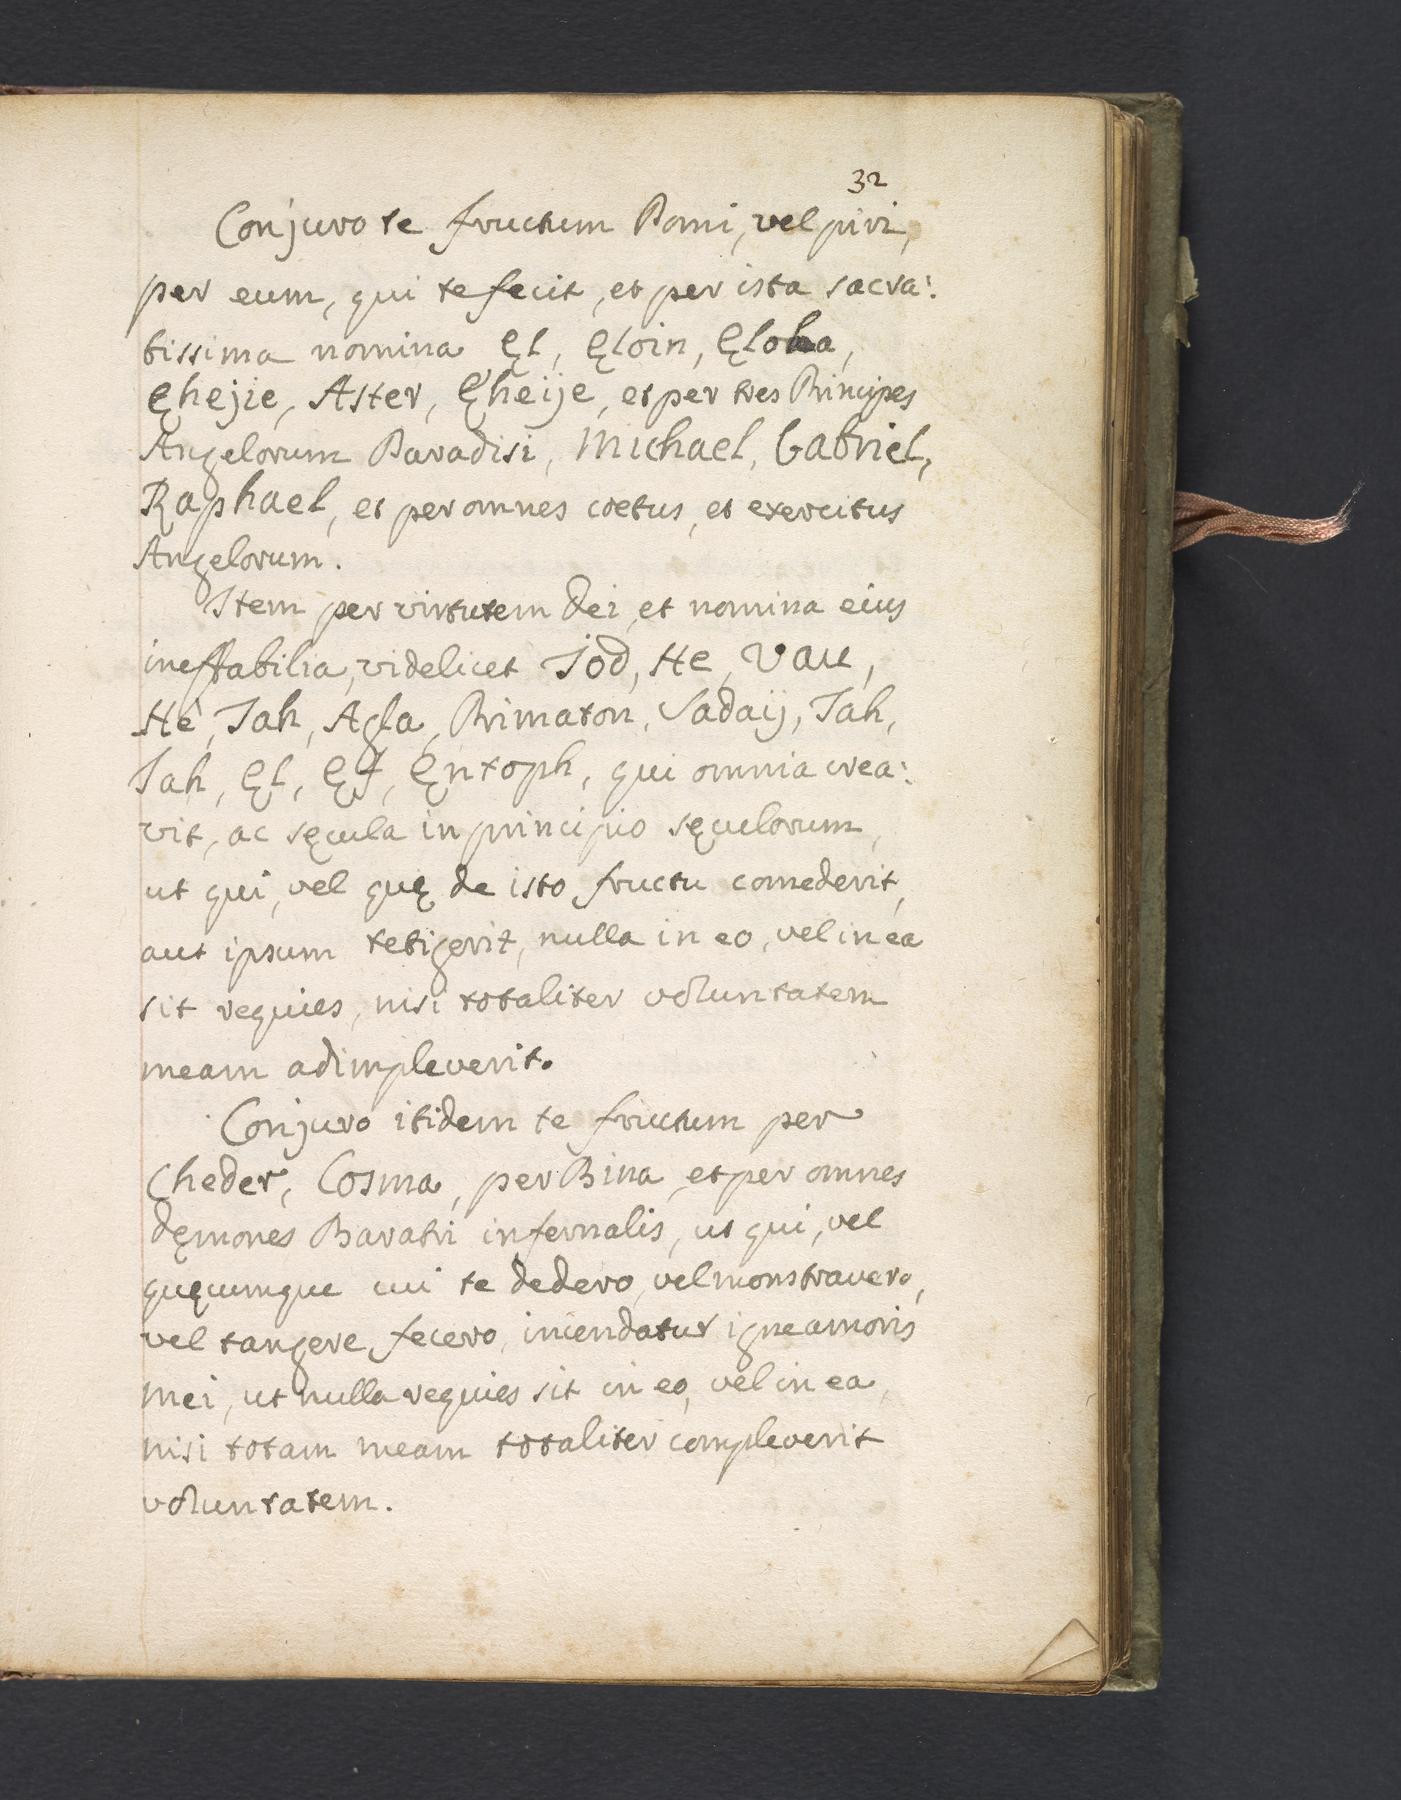 32
Conjuro te fructum Pomi, vel piri,
per eum, qui te fecit, et per ista sacra:
tissima nomina Ęl, Ęloin, Ęloha,
Ęhejie, Aster, Ęheije, et per tres Principes
Angelorum Paradisi, Michael, Gabriel,
Raphael, et per omnes coetus, et exercitus
Angelorum.
Item per virtutem Dei, et nomina eius
ineffabilia, videlicet Jod, He, Vau,
Hè, Jah, Agla, Primaton, Sadaij, Jah,
Jah, Ęl, Ęł, Ęntoph, qui omnia crea:
vit, ac sęcula in principio sęculorum,
ut qui, vel quę de isto fructu comederit,
aut ipsum tetigerit, nulla in eo, vel in ea
sit requies, nisi totaliter voluntatem
meam adimpleverit.
Conjuro itidem te fructum per
Cheder, Cosma, per Bina, et per omnes
dęmones Baratri infernalis, ut qui, vel
quęcumque cui te dedero, vel monstravero,
vel tangere fecero, incendatur igne amoris
mei, ut nulla requies sit in eo, vel in ea,
nisi totam meam totaliter compleverit
voluntatem.